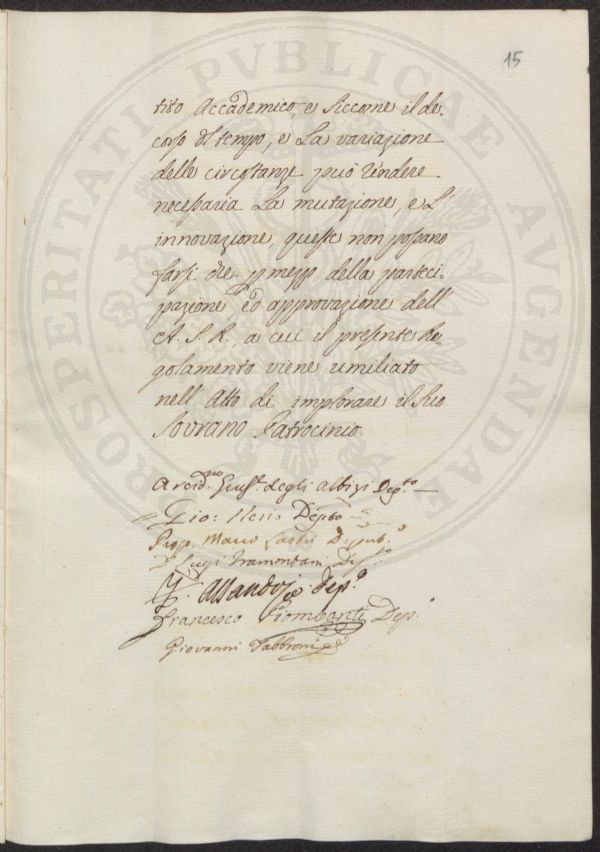 PROSPERITATI PVBLICAE AVGENDAE
15
tito Accademico, e siccome il de-
corso del tempo, e La variazione
delle circostanze può rendere
necessaria La mutazione, e L'
innovazione, queste non possano
farsi che p mezzo della parteci-
pazione, ed approvazione dell'
A. S. R., a cui il presente Re
golamento viene umiliato
nell' Atto di implorare il suo
Sovrano Patrocinio.
degli Albizi Dep.to
Gio: Neri Dep.to
Prop. Marco Lastri Deput.o
D. Luigi Tramontani Dep.to
Dep.o
Francesco Piombanti Dep.o
Giovanni Fabbroni